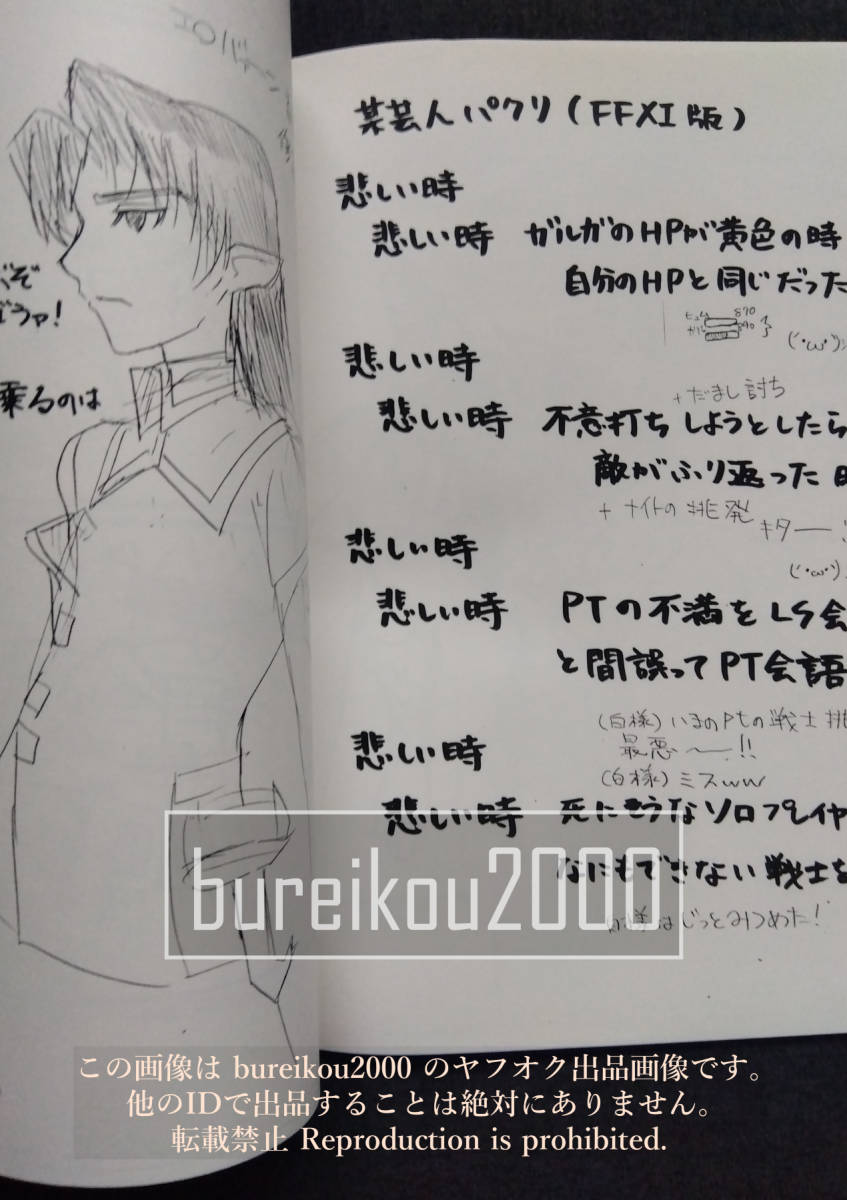 エロバーン
ぞ
うァ!
乗るのは
某芸人パクリ(FFXI版)
悲しい時
悲しい時 ガルガのHPが黄色の時
自分のHPと同じだった
ヒュム 870
ガル 890
(´・ω・`)
悲しい時
+だまし討ち
悲しい時 不意打ちしようとしたら
敵がふり返った
+ナイトの挑発
キター
(´・ω・`)
悲しい時
悲しい時 PTの不満をLS会
と間誤ってPT会話
(白様)いまのPtの戦士挑
最悪〜!!
悲しい時
(白様)ミスww
悲しい時 死にそうなソロプレイヤ
なにもできない戦士を
白様はじっとみつめた!
bureikou2000
この画像は bureikou2000 のヤフオク出品画像です。
他のIDで出品することは絶対にありません。
転載禁止 Reproduction is prohibited.